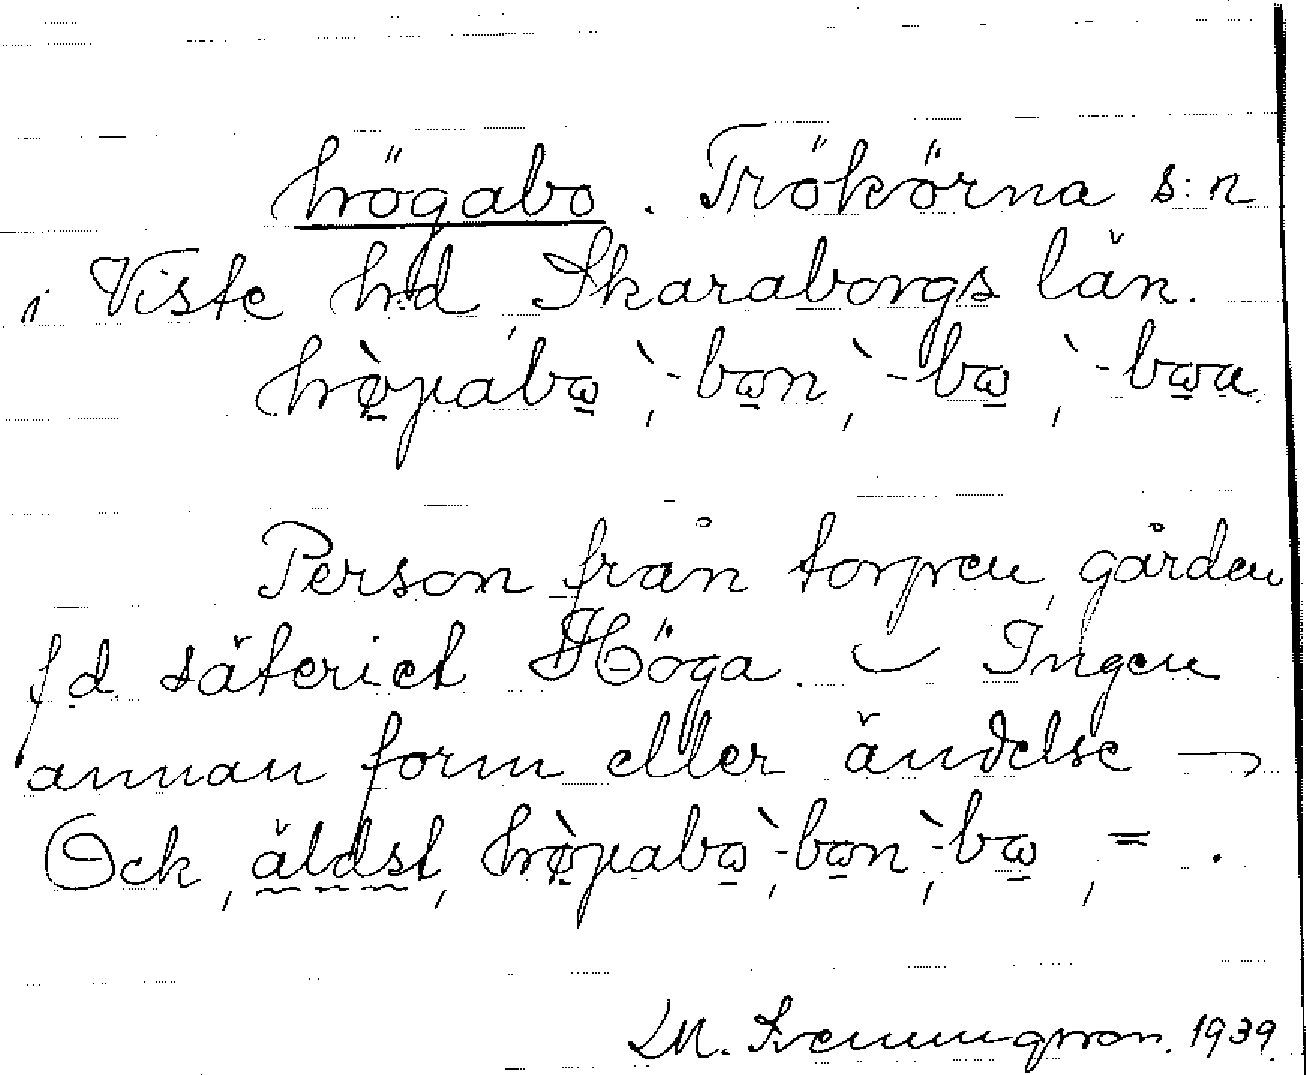 högabo. Trökörna s:n
i Viste h:d, Skaraborgs län.
hö̀gabo `, -bon `, -bo `, -boa.
Person från torpen, gården
f.d. säteriet Höga. – Ingen
annan form eller ändelse –
Ock, äldst, hö̀gabo `, -bon `, -bo, = .
M. Svenungsson. 1939.